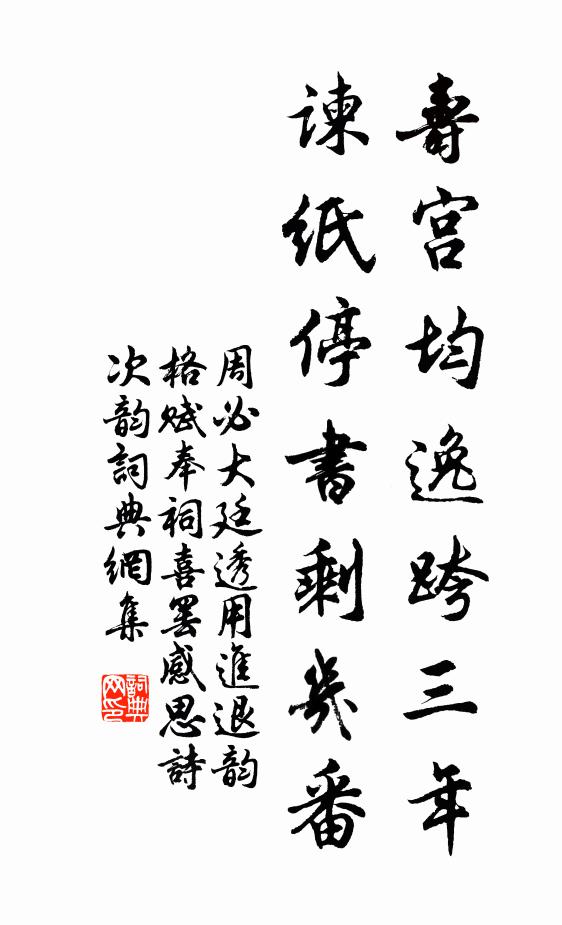 壽宮均逸跨三年
諫紙停書剩幾番
周必大廷透用進退韵
格賦奉祠喜罢感思詩
次韵詞典網集
詞典网印